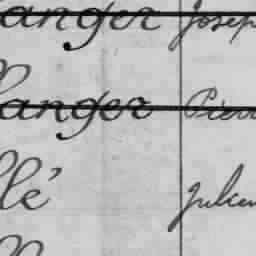 anger Josep
langer Pierr
llé Julien